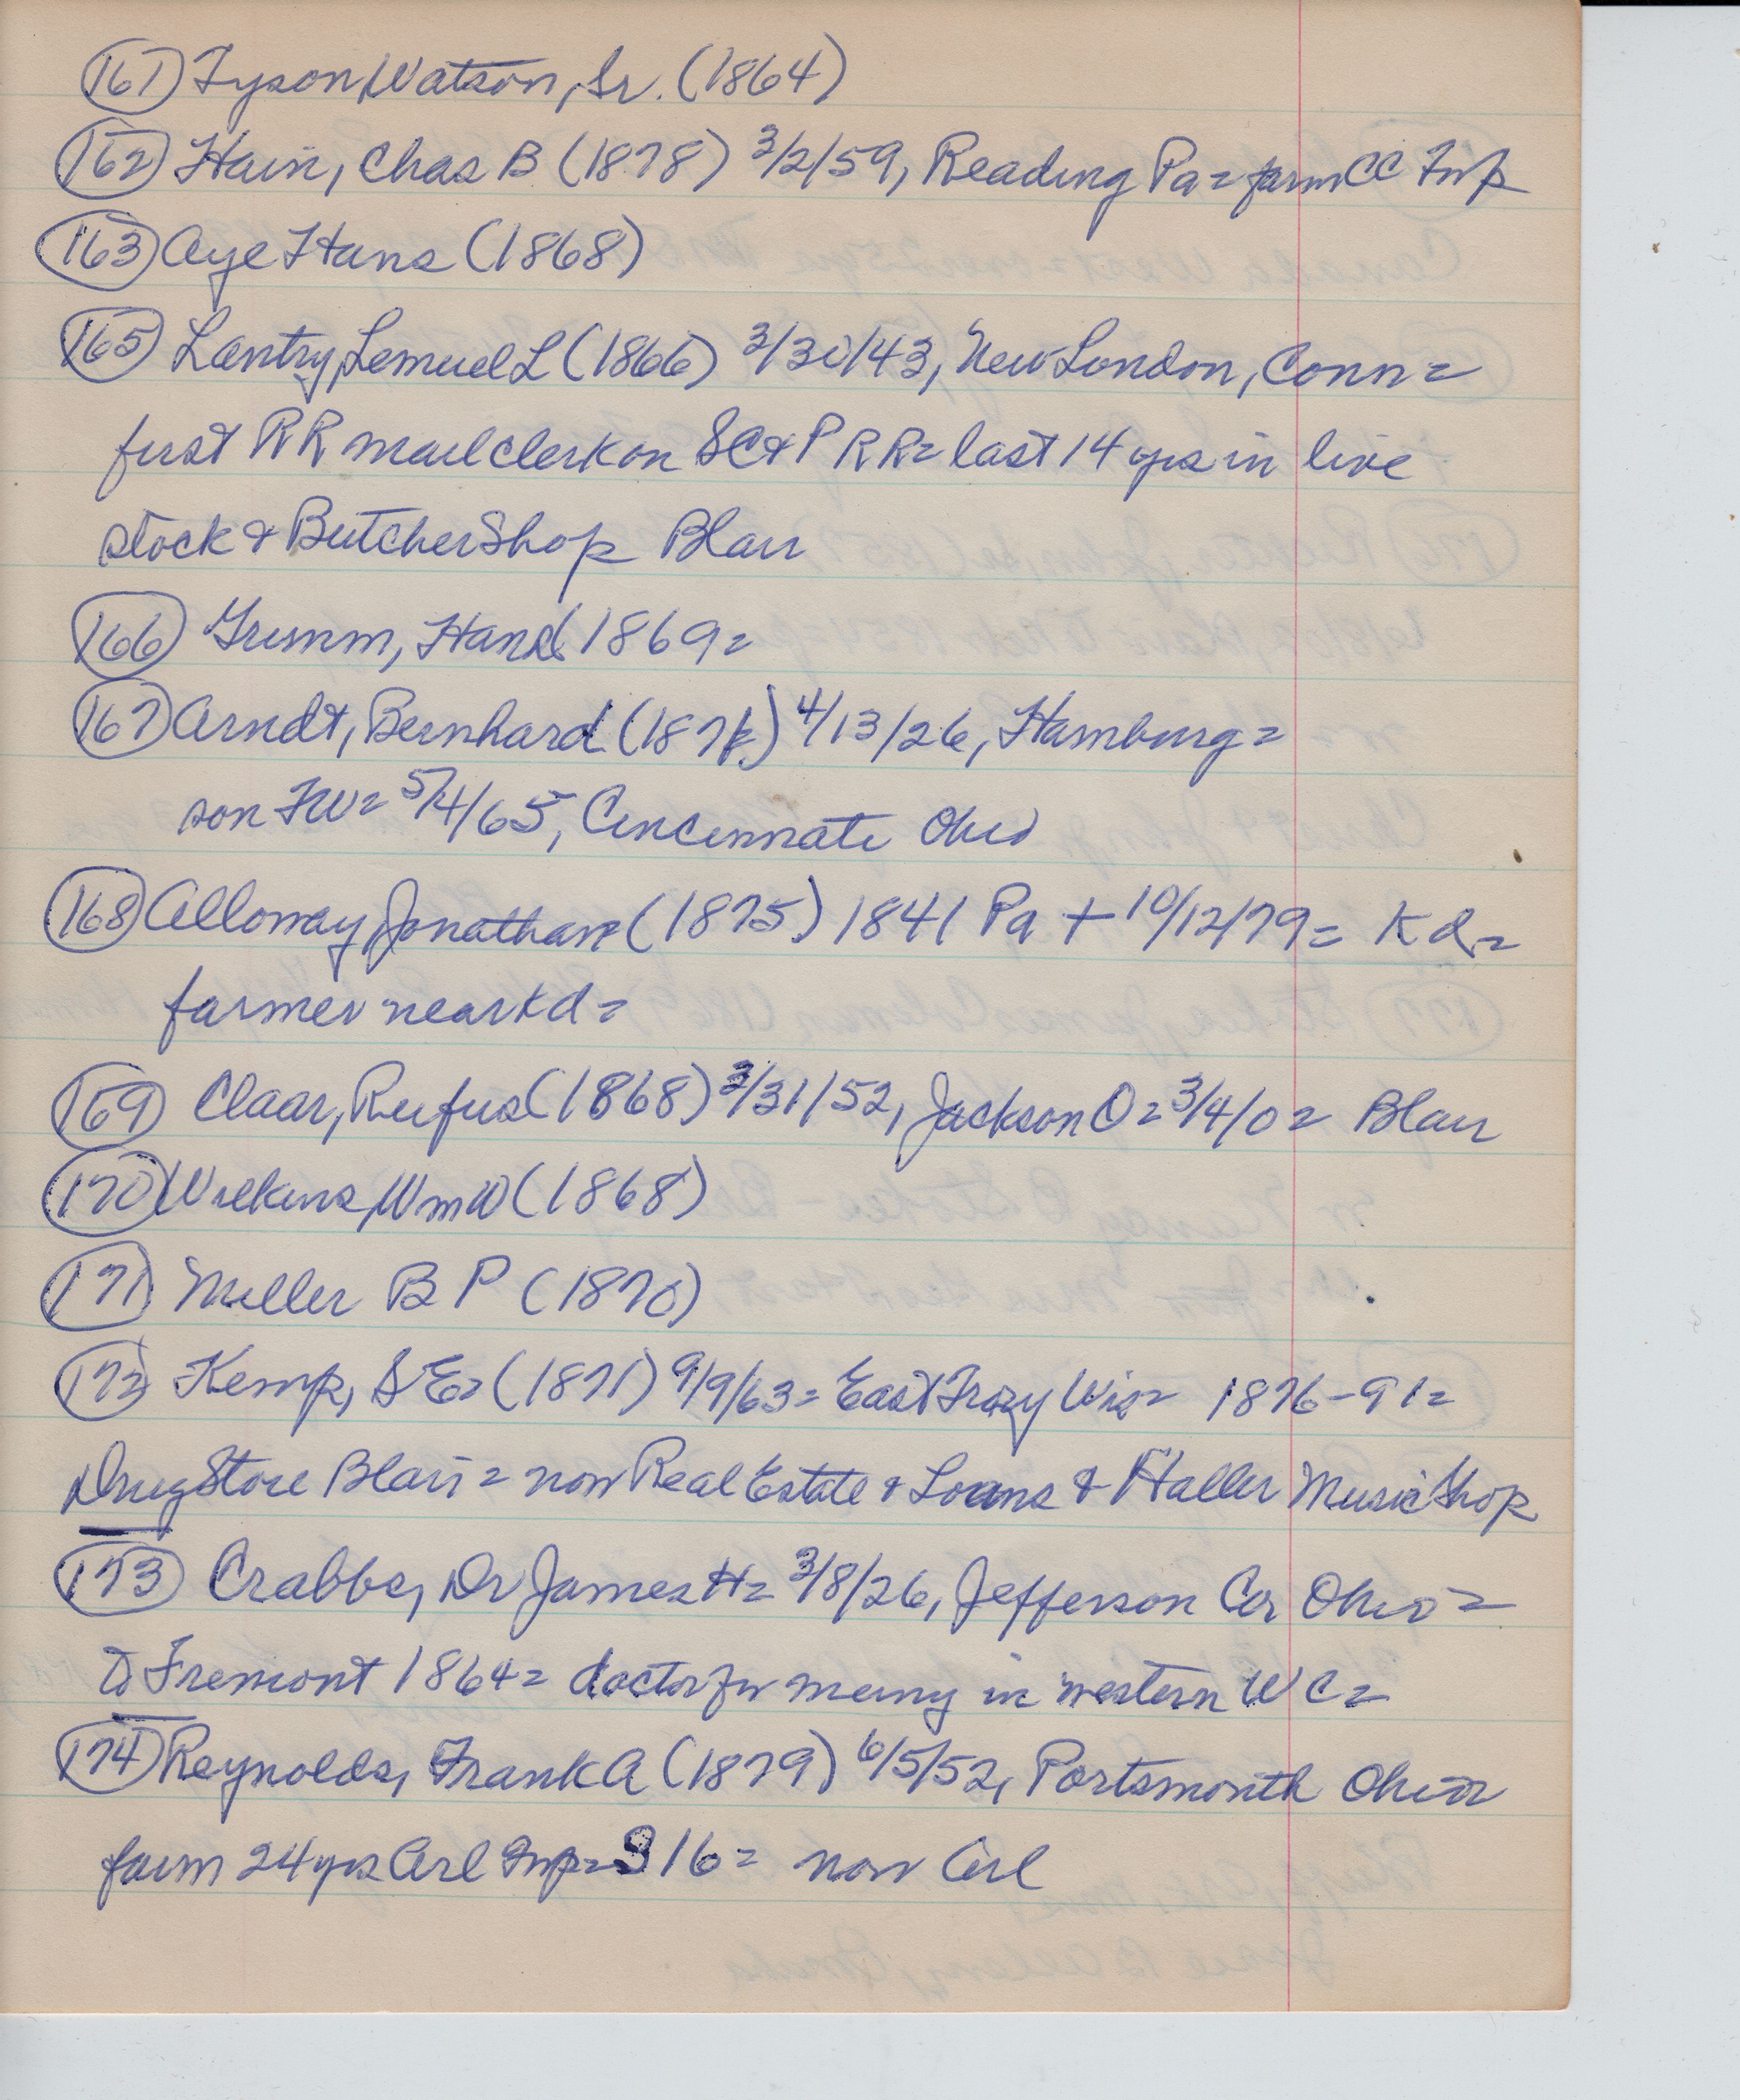 (161) Tyson, Watson, Sr. (1864)
(162) Hain, Chas B (1878) 3/2/59, Reading Pa = farm CC Twp
(163) Aye Hans (1868)
(165) Lantry, Lemuel L (1866) 3/30/43, New London, Conn =
first RR mail clerk on SC & P RR = last 14 yrs in live
stock & Butcher Shop Blair
(166) Grimm, Hans 1869 =
(167) Arndt, Bernhard (187) 4/13/26, Hamburg =
son FW = 5/4/65, Cincinnati Ohio
(168) Alloway, Jonathan (1875) 1841 Pa + 10/12/79 = Kd =
farmer near Kd =
(169) Claar, Rufus (1868) 3/31/52, Jackson O = 3/4/0 = Blair
(170) Wilkins, Wm W (1868)
(171) Miller B P (1870)
(172) Kemp, S E = (1871) 9/9/63 = East Troy Wis = 1876-91 =
Drug Store Blair = now Real Estate & Loans & Haller Music Shop
(173) Crabbs, Dr James H = 3/8/26, Jefferson Co, Ohio =
to Fremont 1864 = doctor for many in western W C =
(174) Reynolds, Frank A (1879) 6/5/52, Portsmouth Ohio =
farm 24 yrs Arl Twp = S 16 = now Arl